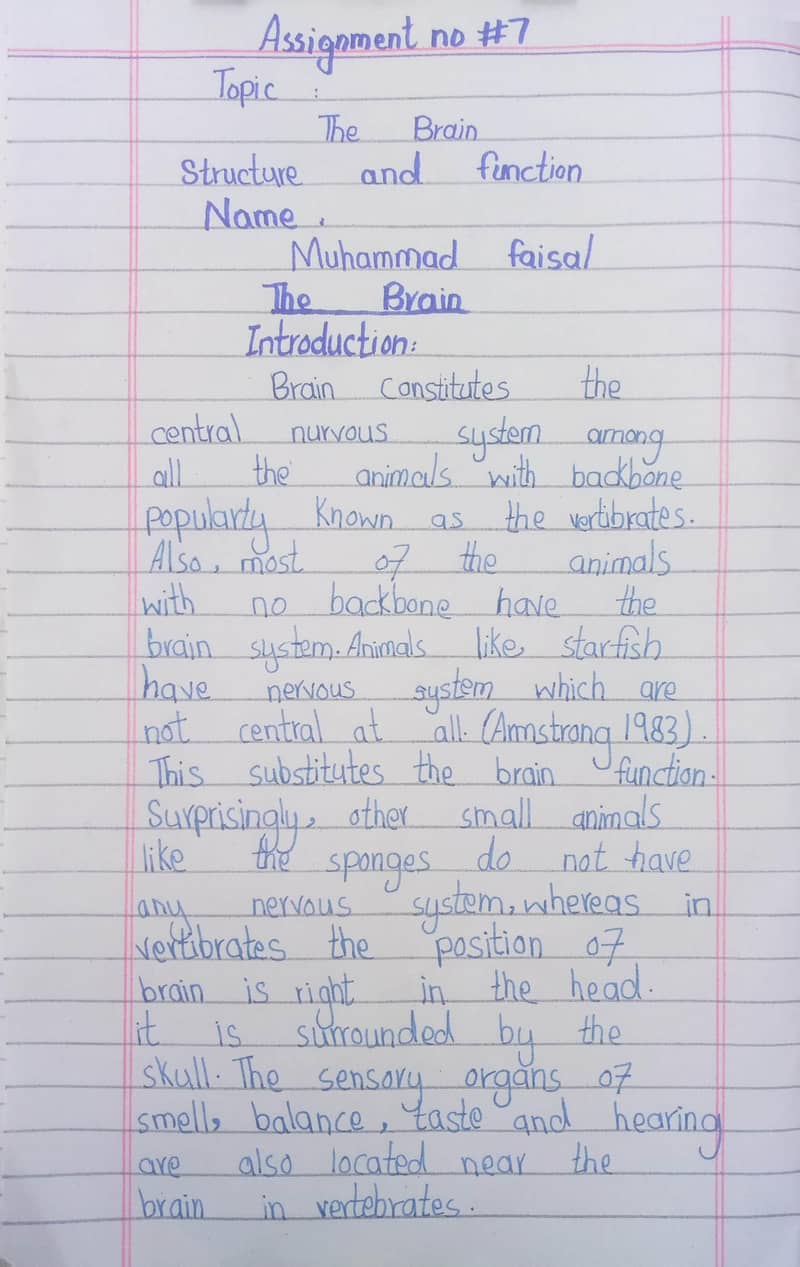 Assignment no #7
Topic :
The Brain
Structure and function
Name .
Muhammad faisal
The Brain
Introduction:
Brain Constitutes the
central nurvous system among
all the animals with backbone
popularty Known as the vertibrates.
Also, most of the animals
with no backbone have the
brain system. Animals like, starfish
have nervous system which are
not central at all. (Armstrong 1983).
This substitutes the brain function.
Surprisingly, other small animals
like the sponges do not have
any nervous system, whereas in
vertibrates the position of
brain is right in the head.
it is surrounded by the
skull. The sensory organs of
smell, balance, taste and hearing
are also located near the
brain in vertebrates.